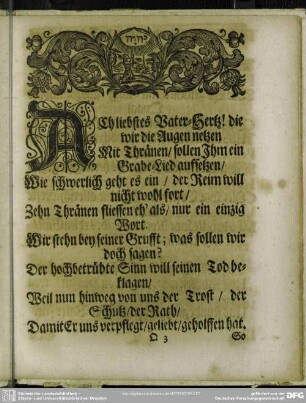 ACh liebstes Vater-Hertz! die
wir die Augen netzen
Mit Thränen/ sollen Ihm ein
Grabe-Lied auffsetzen/
Wie schwerlich geht es ein / der Reim will
nicht wohl fort/
Zehn Thränen fliessen eh' als/ nur ein einzig
Wort.
Wir stehn bey seiner Grufft; was sollen wir
doch sagen?
Der hochbetrübte Sinn will seinen Tod be-
klagen/
Weil nun hinweg von uns der Trost / der
Schutz/ der Rath/
Damit Er uns verpflegt/ geliebt/ geholffen hat.
3
So